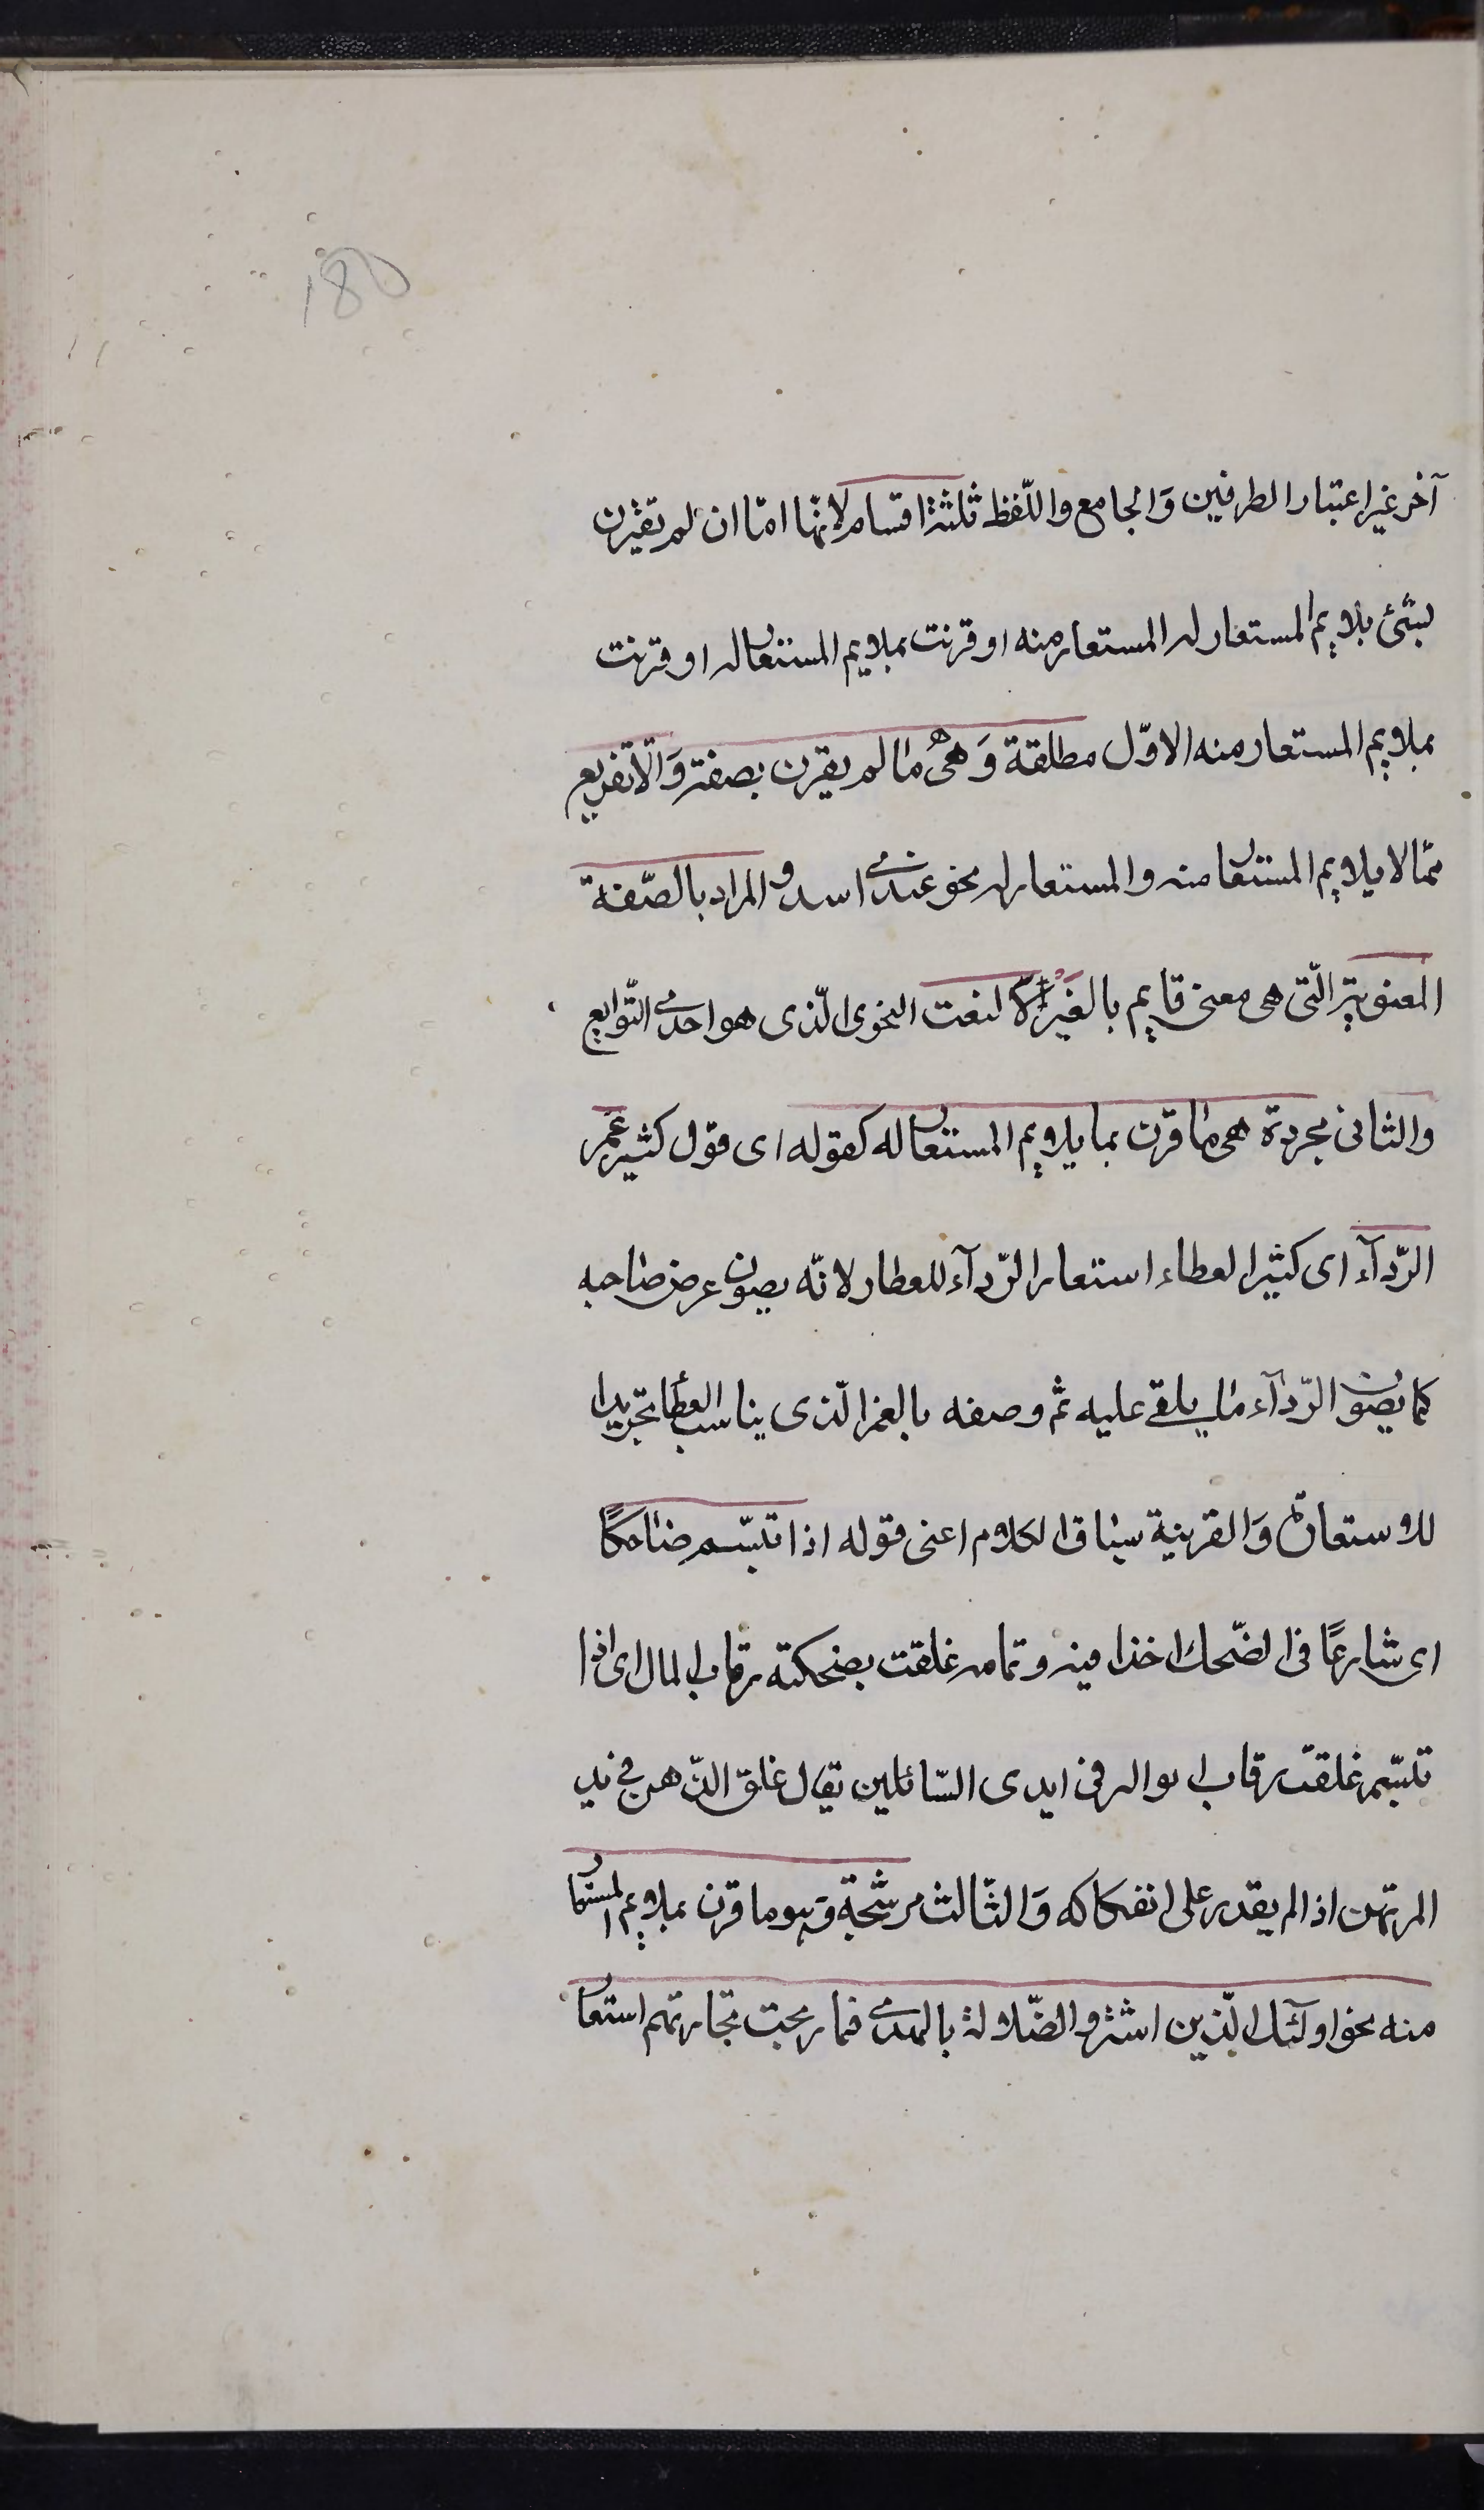 180
آخر غير اعتبار الطرفين وَالجامع واللّفظ ثلثة اقسام لانّها امّا ان لم تقترن
بشئ يلايم المستعار له المستعار منه او قرنت بملايم المستعار له او قرنت
بملايم المستعار منه الاوّل مطلقة وَهى ما لم يقرن بصفة وَالّا تفريع
ممّا لا يلايم المستعار منه والمستعار له نحو عندى اسد و المراد بالصّفة
المعنوية الّتى هى معنى قايم بالغير لا النعت النحوى الّذى هو احدى التّوابع
والثانى مجردة هى ما قرن بما يلايم المستعار له كقوله اى قول كثير غمر
الرّدآء اى كثير العطاء استعار الرّدآء للعطار لانّه يصون عرض صاحبه
كما يصون الرّدآء ما يلقى عليه ثم وصفه بالغمر الّذى يناسب العطا تجريدا
للاستعارة وَالقرينة سياق الكلام اعنى قوله اذا تبسّم ضاحكًا
اى شارعًا فى الضّحك اخذا فيه وتمامه غلقت بضحكته رقاب المال اى اذا
تبسّم غلقت رقاب امواله فى ايدى السّائلين يقال غلق الرّهن فى يد
المرتهن اذا لم يقدر على انفكاكه وَالثّالث مرشّحة وَهو ما قرن بملايم المستعار
منه نحو اولٓئك الّذين اشتروا الضّلالة بالهدى فما ربحت تجارتهم استعار